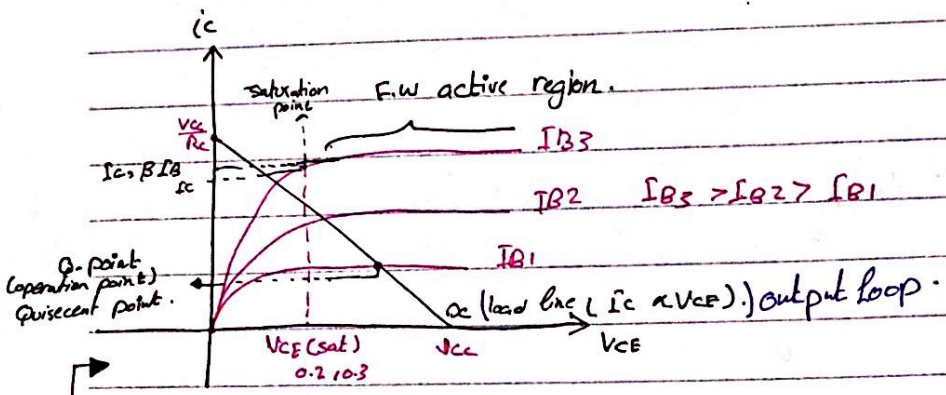 ic
saturation
point
F.W active region.
Vcc/Rc
IB3
Ic, βIB
Ic
IB2
IB3 > IB2 > IB1
Q-point
(operation point)
Quisecent point.
IB1
DC (load line ( Ic ∝ VCE).) output loop.
VCE (sat)
0.2, 0.3
Vcc
VCE